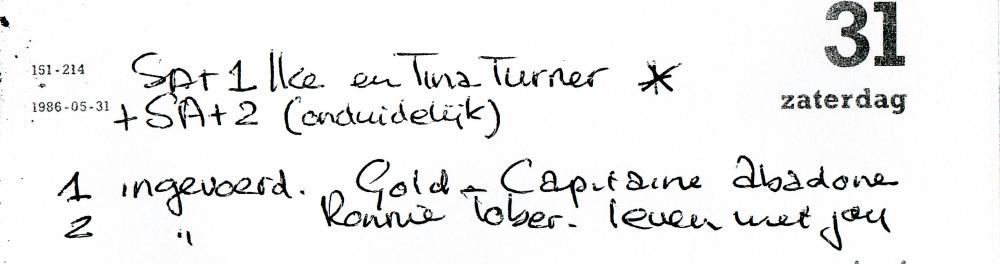 31
zaterdag
151-214
1986-05-31
SA+1 Ike en Tina Turner *
+SA+2 (onduidelijk)
1 ingevoerd. Gold - Capitaine abadone
2 " Ronnie Tober. leven met jou